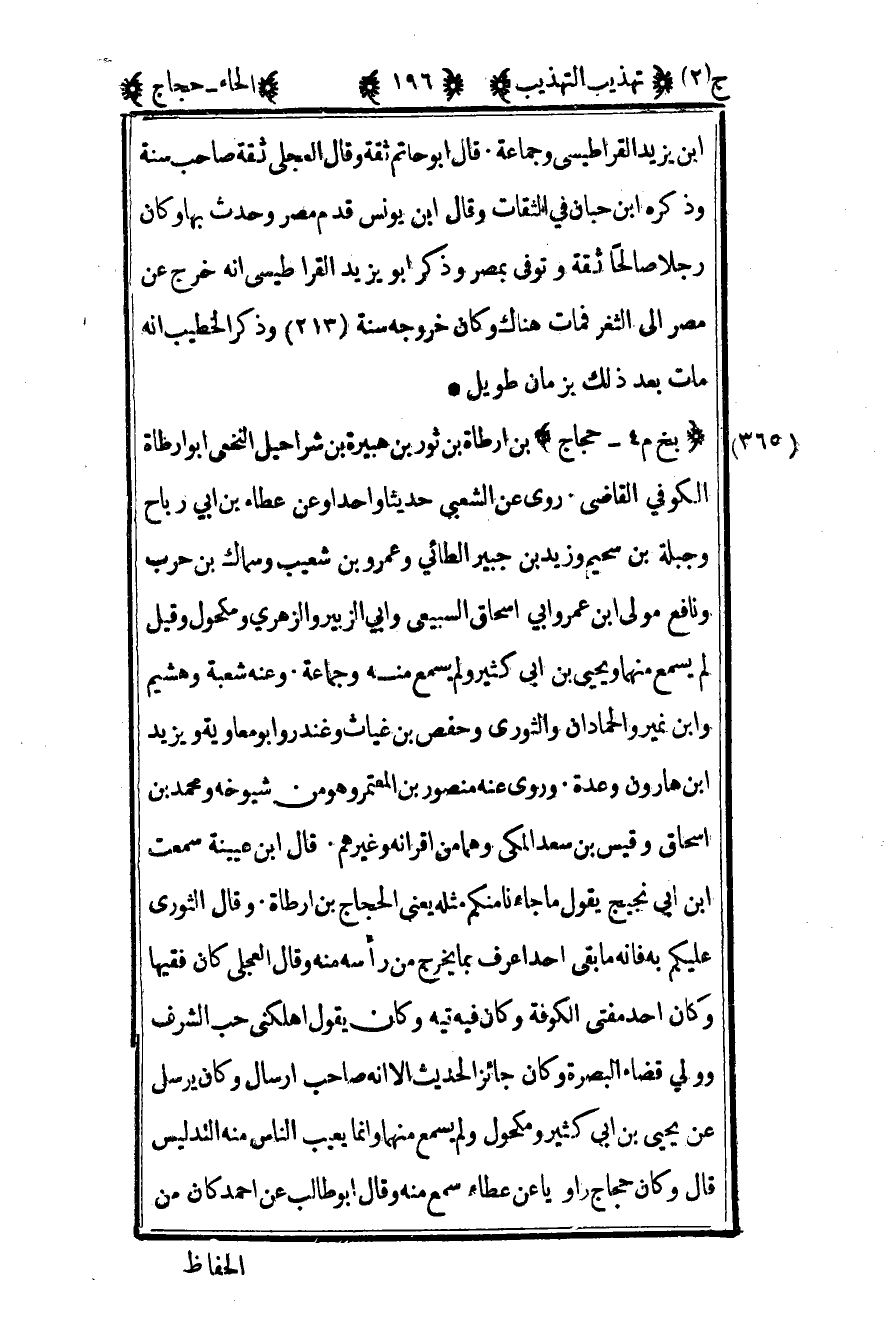 ج(٢) ﴿ تهذيب التهذيب ﴾ ﴿ ١٩٦ ﴾ ﴿ الحاء ـ حجاج ﴾
ابن يزيد القراطيسى وجماعة ٠ قال ابو حاتم ثقة وقال العجلى ثقة صاحب سنة
وذكره ابن حبان في الثقات وقال ابن يونس قدم مصر وحدث بها وكان
رجلا صالحًا ثقة و توفى بمصر وذكر ابو يزيد القراطيسى انه خرج عن
مصر الى الثغر فمات هناك وكان خروجه سنة (٢١٣) وذكر الخطيب انه
مات بعد ذلك بزمان طويل ●
(٣٦٥) ﴿ بخ م ٤ ـ حجاج ﴾ بن ارطاة بن ثور بن هبيرة بن شراحيل النخعى ابو ارطاة
الكوفي القاضى ٠ روى عن الشعبي حديثا واحدا وعن عطاء بن ابي رباح
وجبلة بن سحيم وزيد بن جبير الطائي وعمرو بن شعيب وسماك بن حرب
ونافع مولى ابن عمر وابي اسحاق السبيعى وابي الزبير والزهري ومكحول وقيل
لم يسمع منهما ويحيى بن ابى كثير ولم يسمع منه وجماعة ٠ وعنه شعبة وهشيم
وابن نمير والحمادان والثورى وحفص بن غياث وغندر وابو معاوية ويزيد
ابن هارون وعدة ٠ وروى عنه منصور بن المعتمر وهو من شيوخه ومحمد بن
اسحاق وقيس بن سعد المكى وهما من اقرانه وغيرهم ٠ قال ابن عيينة سمعت
ابن ابي نجيح يقول ما جاءنا منكم مثله يعنى الحجاج بن ارطاة ٠ وقال الثورى
عليكم به فانه ما بقى احد اعرف بما يخرج من رأسه منه وقال العجلى كان فقيها
وكان احد مفتى الكوفة وكان فيه تيه وكان يقول اهلكنى حب الشرف
وولي قضاء البصرة وكان جائز الحديث الا انه صاحب ارسال وكان يرسل
عن يحيى بن ابي كثير ومكحول ولم يسمع منهما وانما يعيب الناس منه التدليس
قال وكان حجاج راويا عن عطاء سمع منه وقال ابو طالب عن احمد كان من
الحفاظ